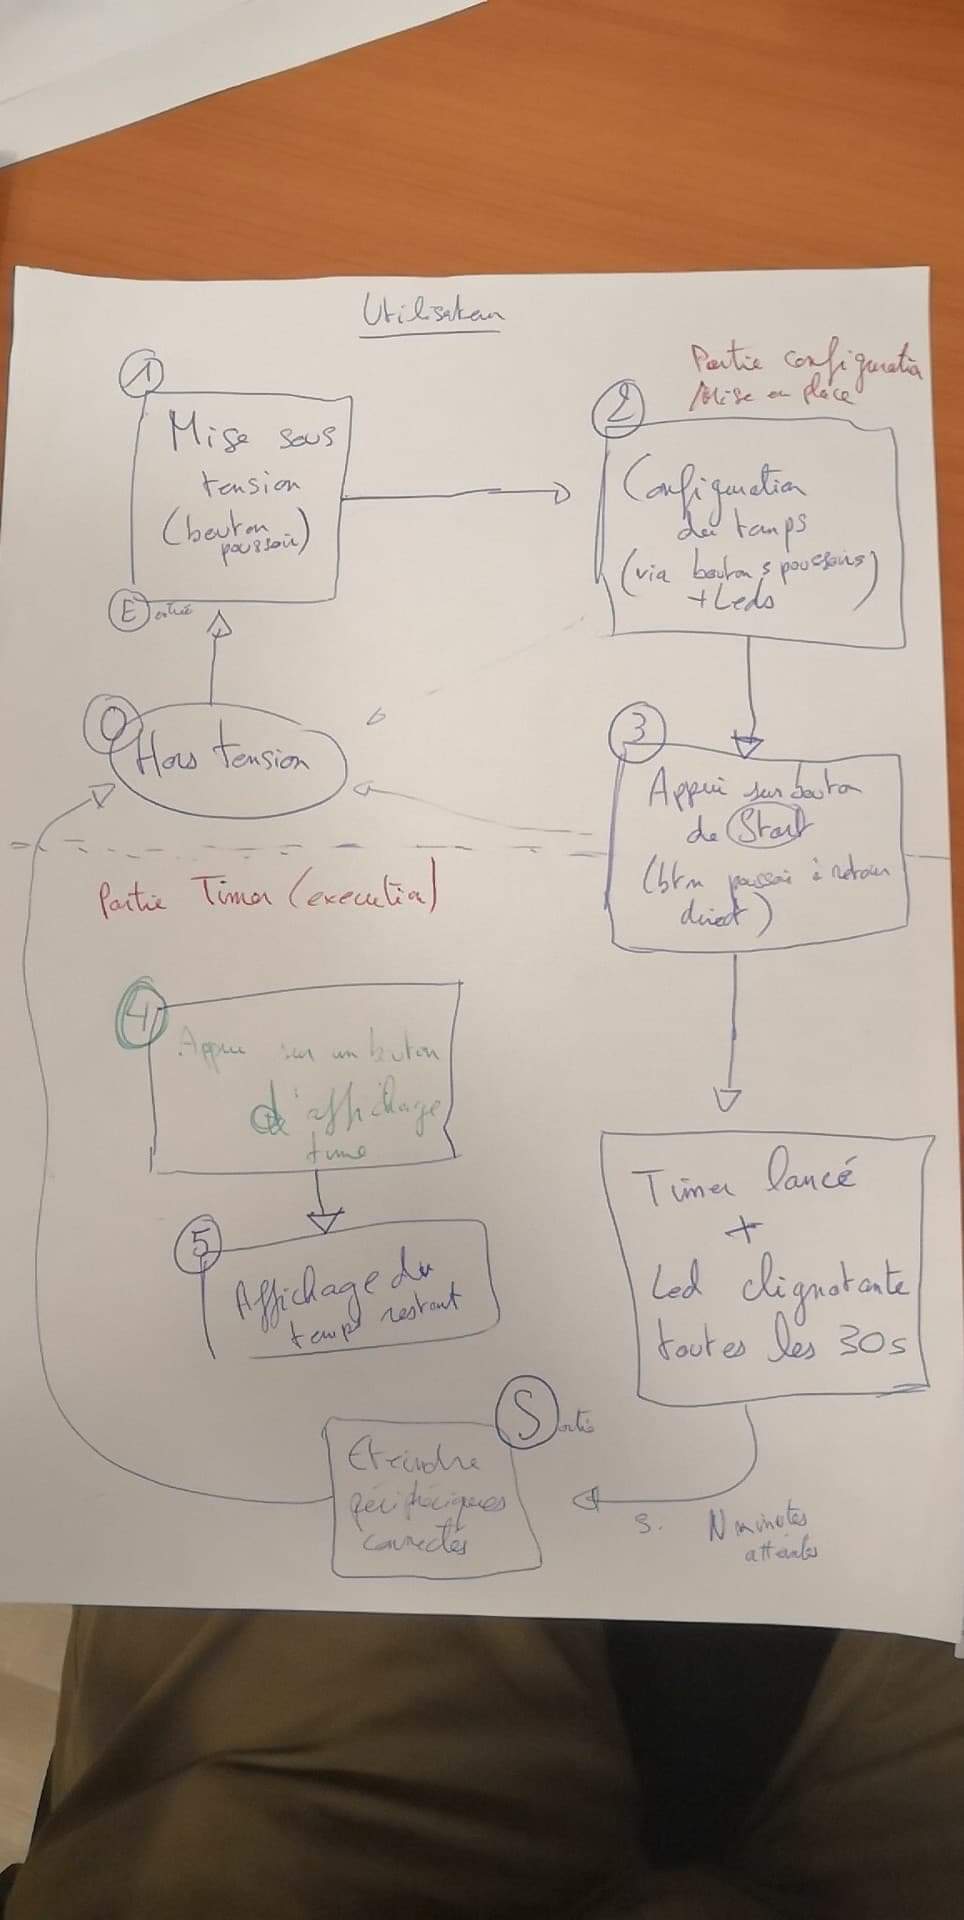 Utilisateur
Partie configuration
Mise en place
1
Mise sous
tension
(bouton
poussoir)
E ntrée
2
Configuration
du temps
(via boutons poussoirs)
+ Leds
0
Hors tension
3
Appui sur bouton
de Start
(btn poussoir à retour
direct)
Partie Timer (execution)
4
Appui sur un bouton
d'affichage
time
5
Affichage du
temps restant
Timer lancé
+
Led clignotante
toutes les 30s
S ortie
Eteindre
périphériques
connectés
S. N minutes
atteintes